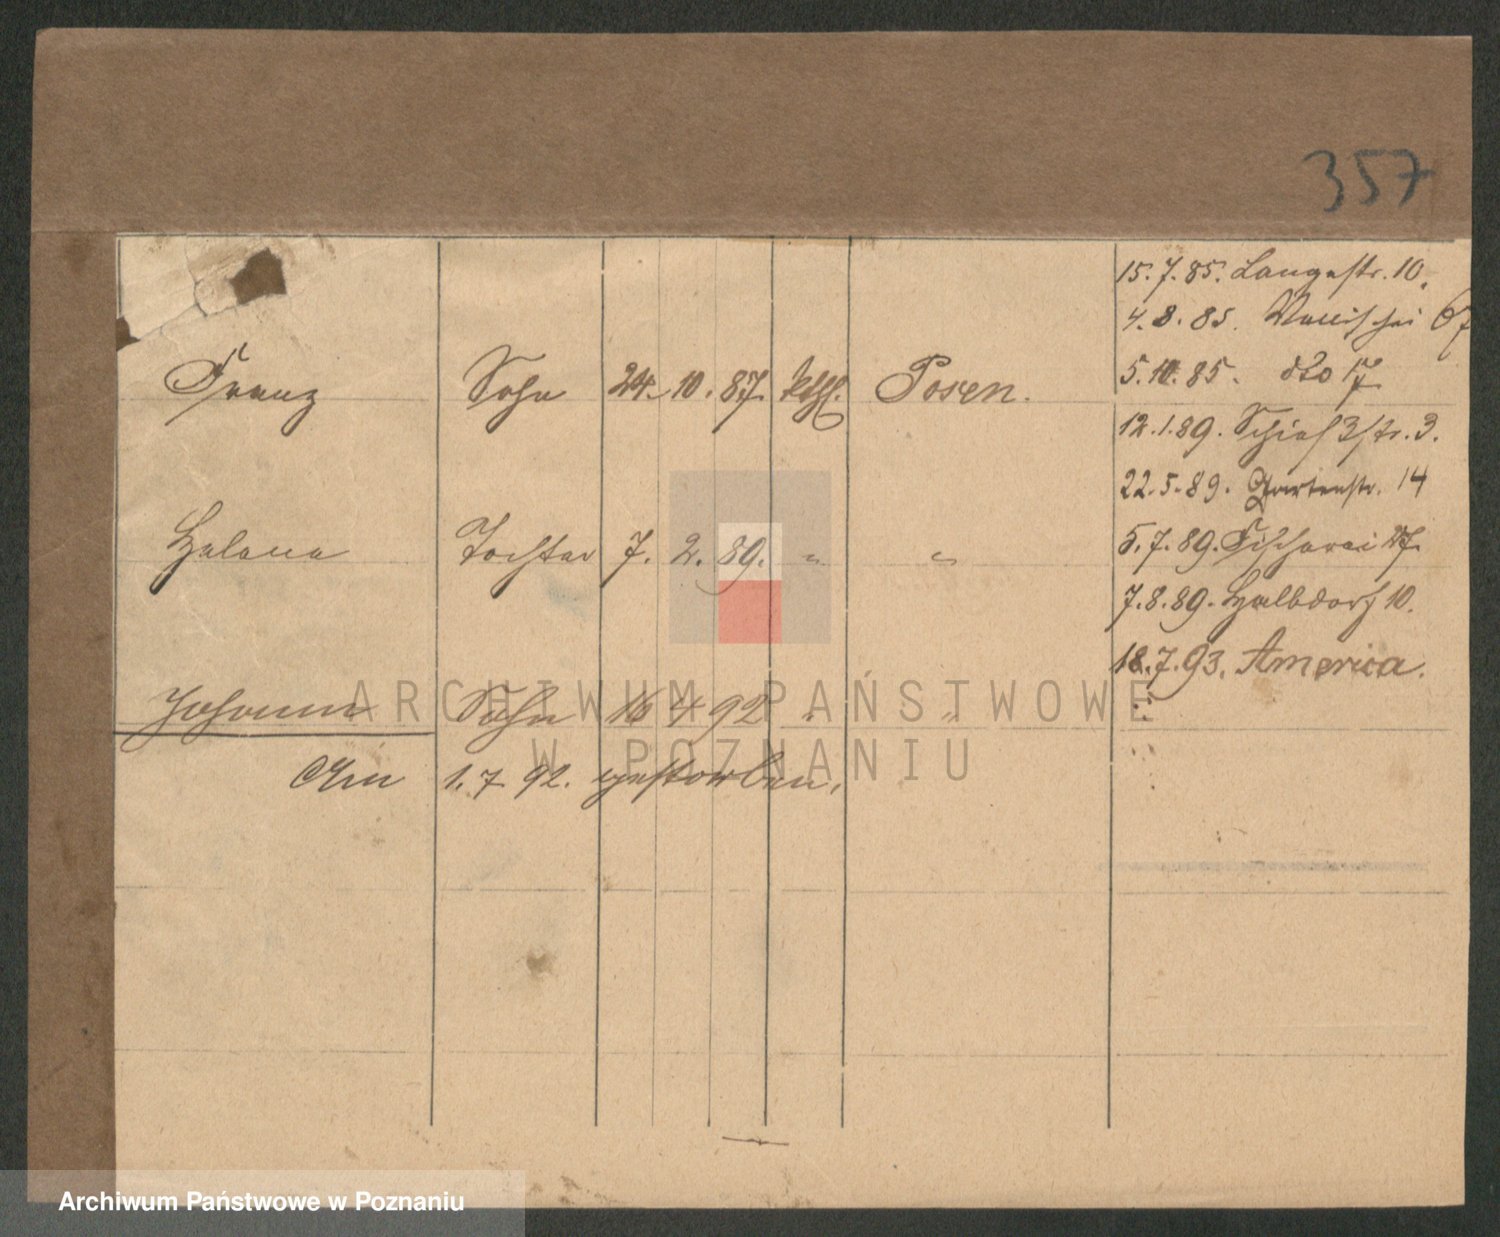 357
15. 7. 85. Langestr. 10.
4. 8. 85. Wallischei 67
5. 10. 85. dto 17
Franz Sohn 24. 10. 87. kthl. Posen.
12. 1. 89. Schießstr. 3.
22. 5. 89. Gartenstr. 14
Helena Tochter 7. 2. 89. " "
5. 7. 89. Fischerei 27.
7. 8. 89. Halbdorf 10.
18. 7. 93. America.
Johann Sohn 16 4 92 " "
Am 1. 7 92. gestorben.
ARCHIWUM PAŃSTWOWE
W POZNANIU
Archiwum Państwowe w Poznaniu